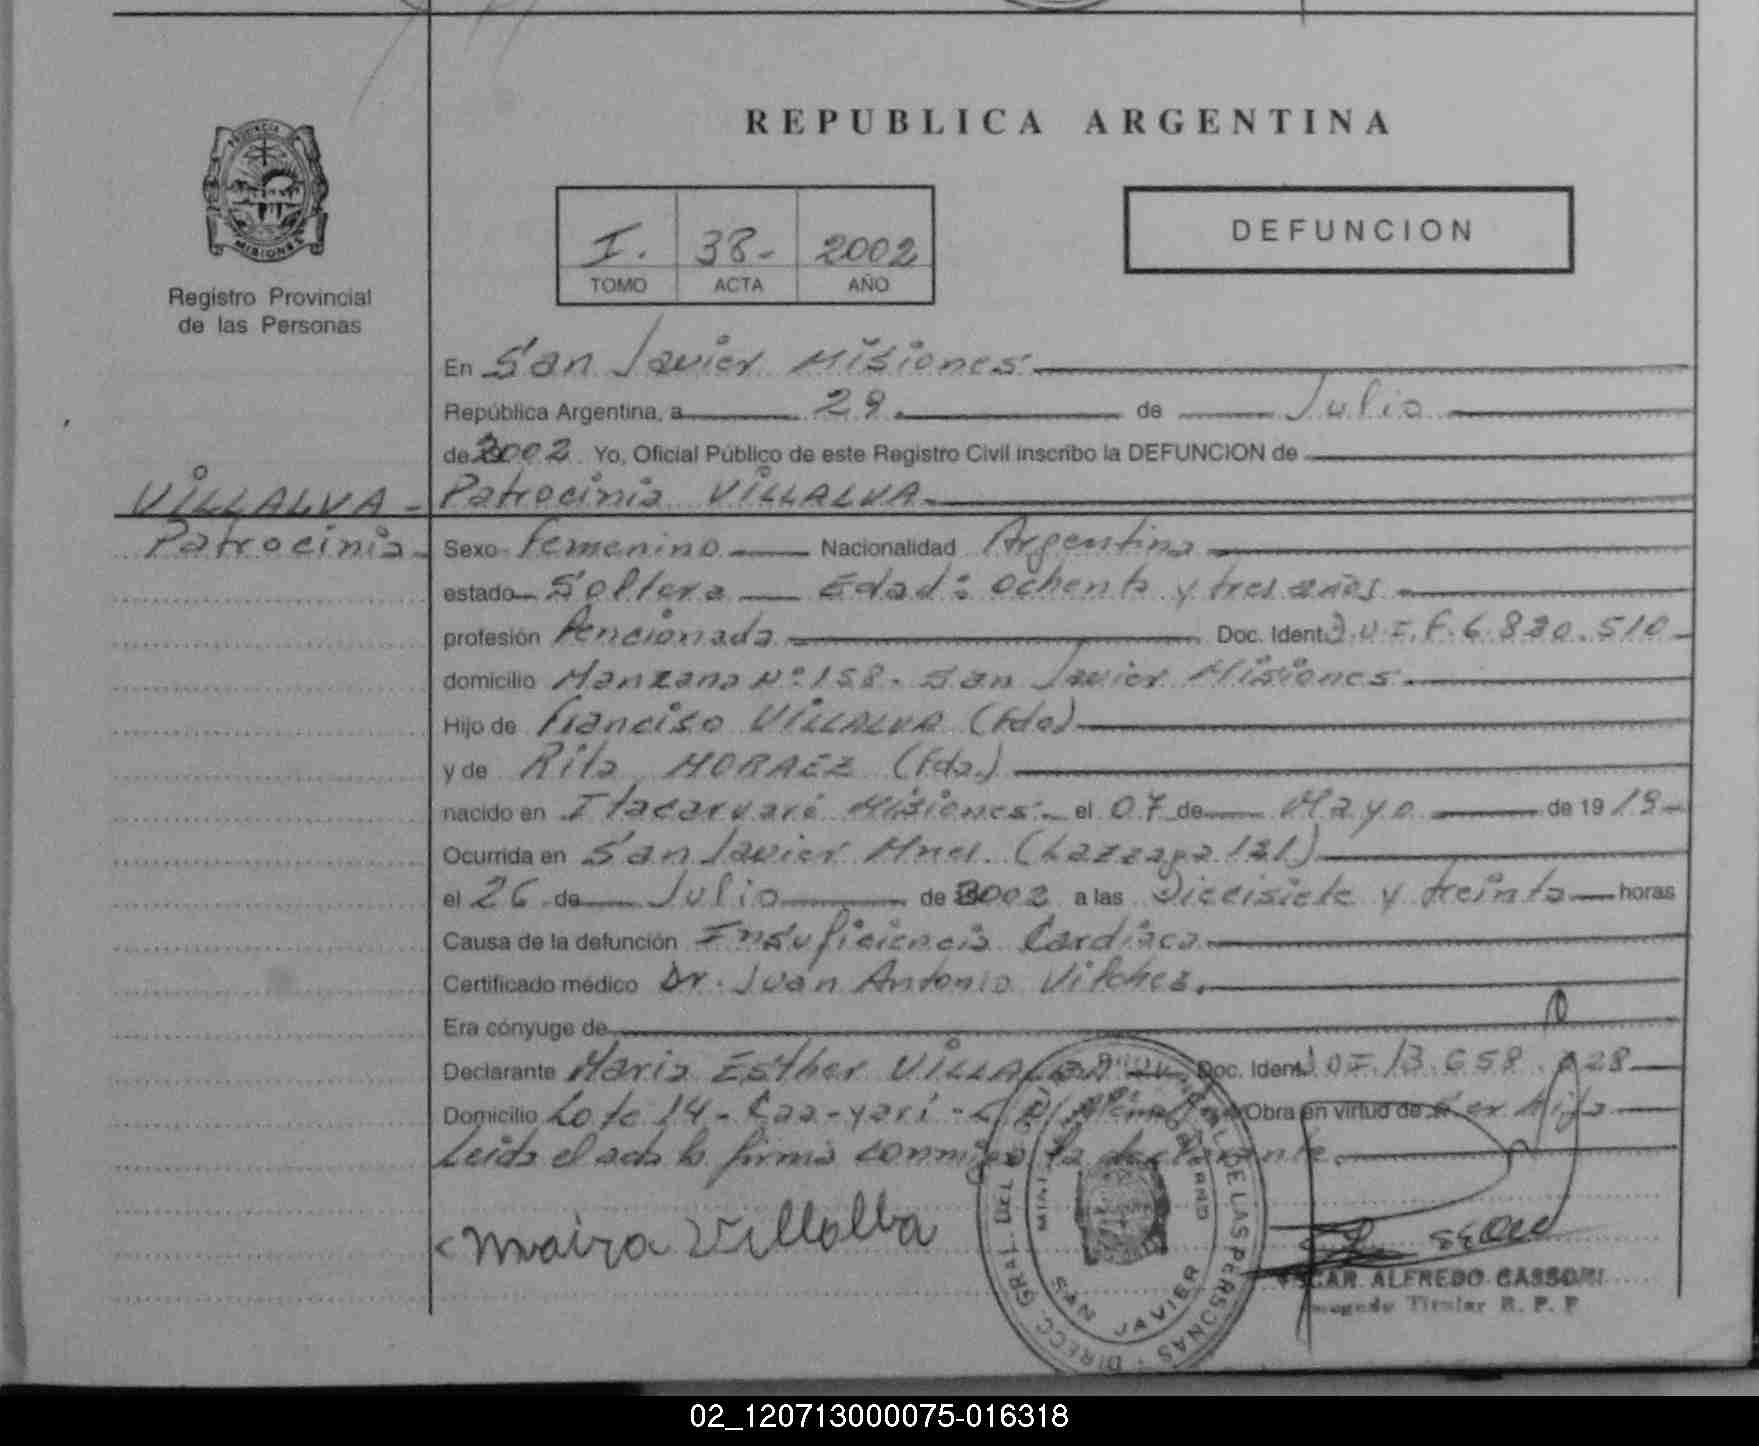 REPUBLICA ARGENTINA
PROVINCIA DE MISIONES
Registro Provincial
de las Personas
I. 38- 2002
TOMO ACTA AÑO
DEFUNCION
En San Javier Misiones
República Argentina, a 29 de Julio
de 2002 Yo, Oficial Público de este Registro Civil inscribo la DEFUNCION de
VILLALVA - Patrocinia VILLALVA
Patrocinia - Sexo Femenino Nacionalidad Argentina
estado Soltera Edad: Ochenta y tres años
profesión Pencionada Doc. Ident. F. 6.830.510
domicilio Manzana Nº 158. San Javier Misiones
Hijo de Franciso VILLALVA (Fdo)
y de Rita MORAEZ (Fda.)
nacido en Itacaruaré Misiones el 07 de Mayo de 19 19
Ocurrida en San Javier Mnes. 121)
el 26 de Julio de 2002 a las Diecisiete y treinta horas
Causa de la defunción Insuficiencia Cardiaca
Certificado médico Dr. Juan Antonio Vilchez.
Era cónyuge de
Declarante Maria Esther VILLALBA Doc. Ident. 13.658. 28
Domicilio Lote 14 - Caa-yari - Obra en virtud de Ser Hija
Leida el acta la firma conmigo la declarante.
Maira Villalba
DIRECC. GRAL. DEL DE LAS PERSONAS
SAN JAVIER
OSCAR ALFREDO CASSORI
Titular R. P. P
02_120713000075-016318